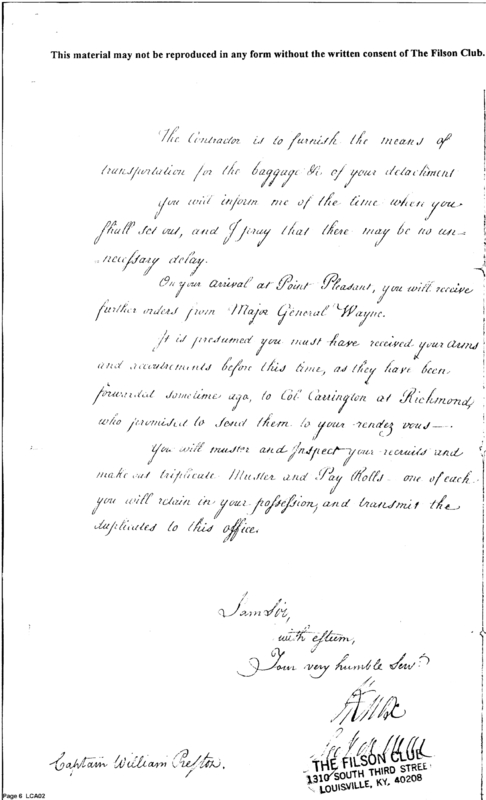 This material may not be reproduced in any form without the written consent of The Filson Club.
The Contractor is to furnish the means of
transportation for the baggage &c of your detachment
you will inform me of the time when you
shall set out, and I pray that there may be no un-
necessary delay.
On your arrival at Point Pleasant, you will receive
further orders from Major General Wayne.
It is presumed you must have received your arms
and accoutrements before this time, as they have been
forwarded sometime ago, to Col Carrington at Richmond,
who promised to send them to your rendez vous—
You will muster and Inspect your recruits and
make out triplicate Muster and Pay Rolls one of each
you will retain in your possession, and transmit the
duplicates to this office.
I am Sir,
with esteem,
Your very humble Servt.
H Knox
Secy of War
THE FILSON CLUB
1310 SOUTH THIRD STREET
LOUISVILLE, KY. 40208
Captain William Preston.
Page 6 LCA02